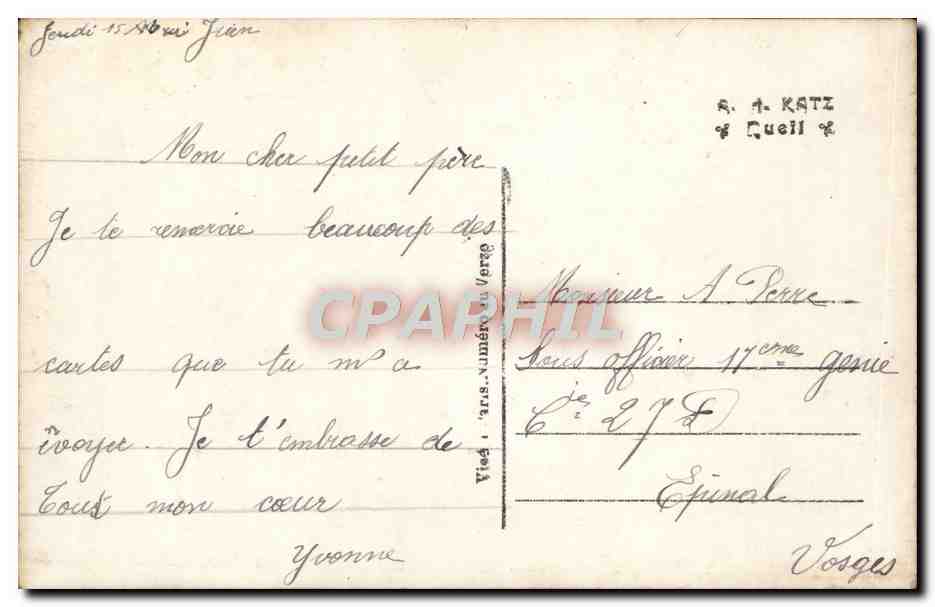 Jeudi 15 Juin
Mon cher petit père
Je te remercie beaucoup des
cartes que tu m'a
ivoyer. Je t'embrasse de
tout mon cœur
Yvonne
A. KATZ
Rueil
Visé Paris. Numéro au Verso
CPAPHIL
Monsieur A Perre
Sous officier 17eme genie
Cie 27
Epinal
Vosges